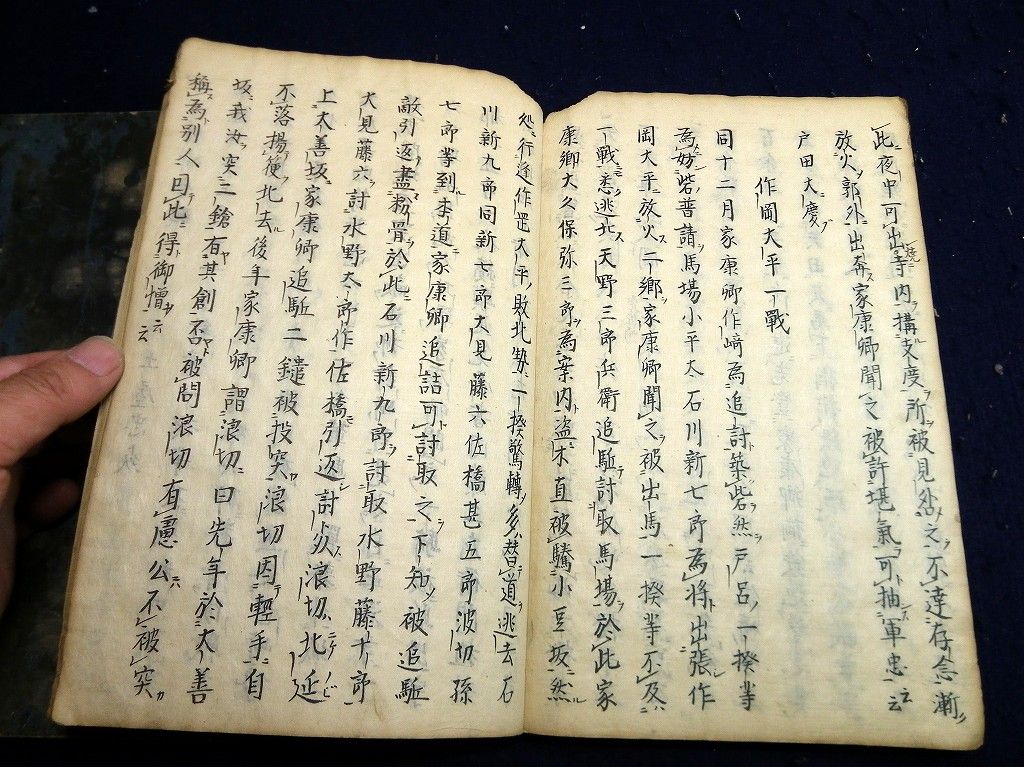 此夜中可出寺内構支度所被見咎之不達存念漸
放火郭外出奔家康卿聞之被許堪氣可抽軍忠云云
戸田大慶
作岡大平一戰
同十二月家康卿作﨑為追討築砦然戸呂一揆等
為妨砦普請馬場小平太石川新七郎為將出張作
岡大平放火二郷家康卿聞之被出馬一揆等不及
一戰悉逃北天野三郎兵衛追駈討取馬場於此家
康卿大久保弥三郎為案内盗木直被騰小豆坂然
処行逢作岡大平敗北勢一揆驚轉多替道逃去石
川新九郎同新七郎大見藤六佐橋甚五郎波切孫
七郎等到来道家康卿追詰可討取之下知被追駈
敵引返盡粉骨於此石川新九郎討取水野藤十郎
大見藤六討水野太郎作佐橋引返討死浪切北延
上大善坂家康卿追駈二鑓被投突浪切因輕手自
不落揚箯北去後年家康卿謂浪切曰先年於大善
坂我汝突三鎗有其創否被問浪切有慮公不被突
稱為別人回此得御憎云云